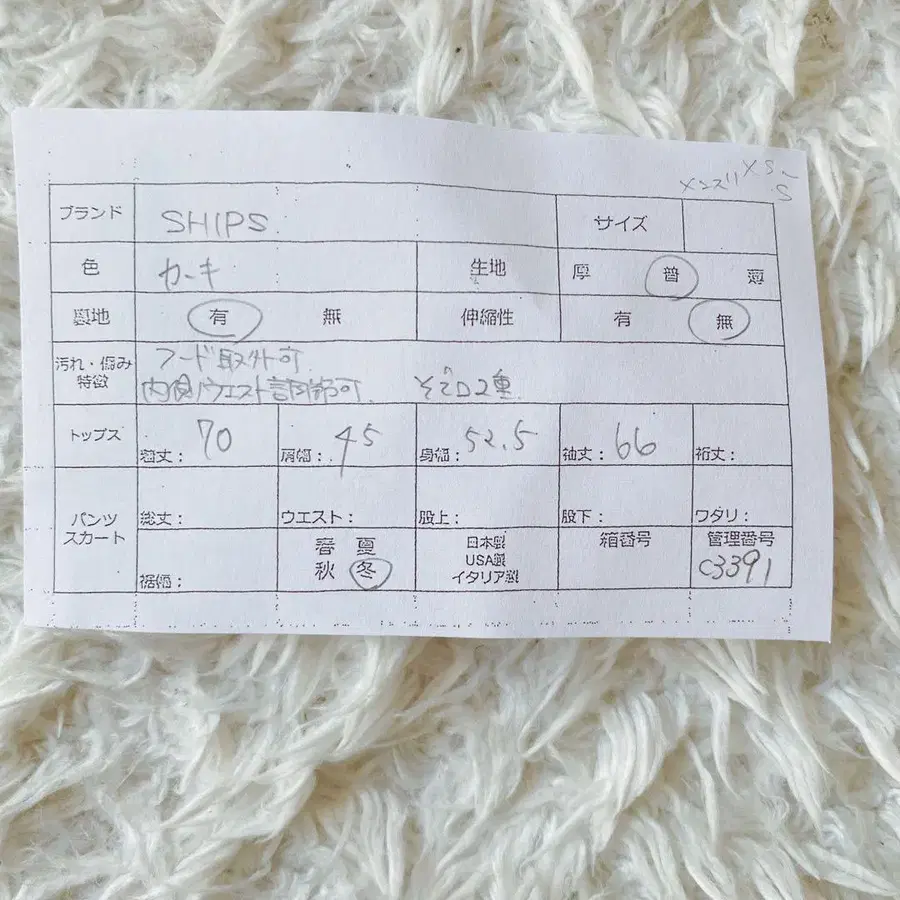 メンズ XS〜
S
ブランド SHIPS サイズ
色 カーキ 生地 厚 普 薄
裏地 有 無 伸縮性 有 無
汚れ・傷み 特徴
フード取外可
内側ウエスト調節可 そで口2重
トップス 着丈: 70 肩幅: 45 身幅: 52.5 袖丈: 66 裄丈:
パンツ スカート
総丈: ウエスト: 股上: 股下: ワダリ:
裾幅: 春 夏 日本製 箱番号 管理番号
秋 冬 USA製 C3391
イタリア製